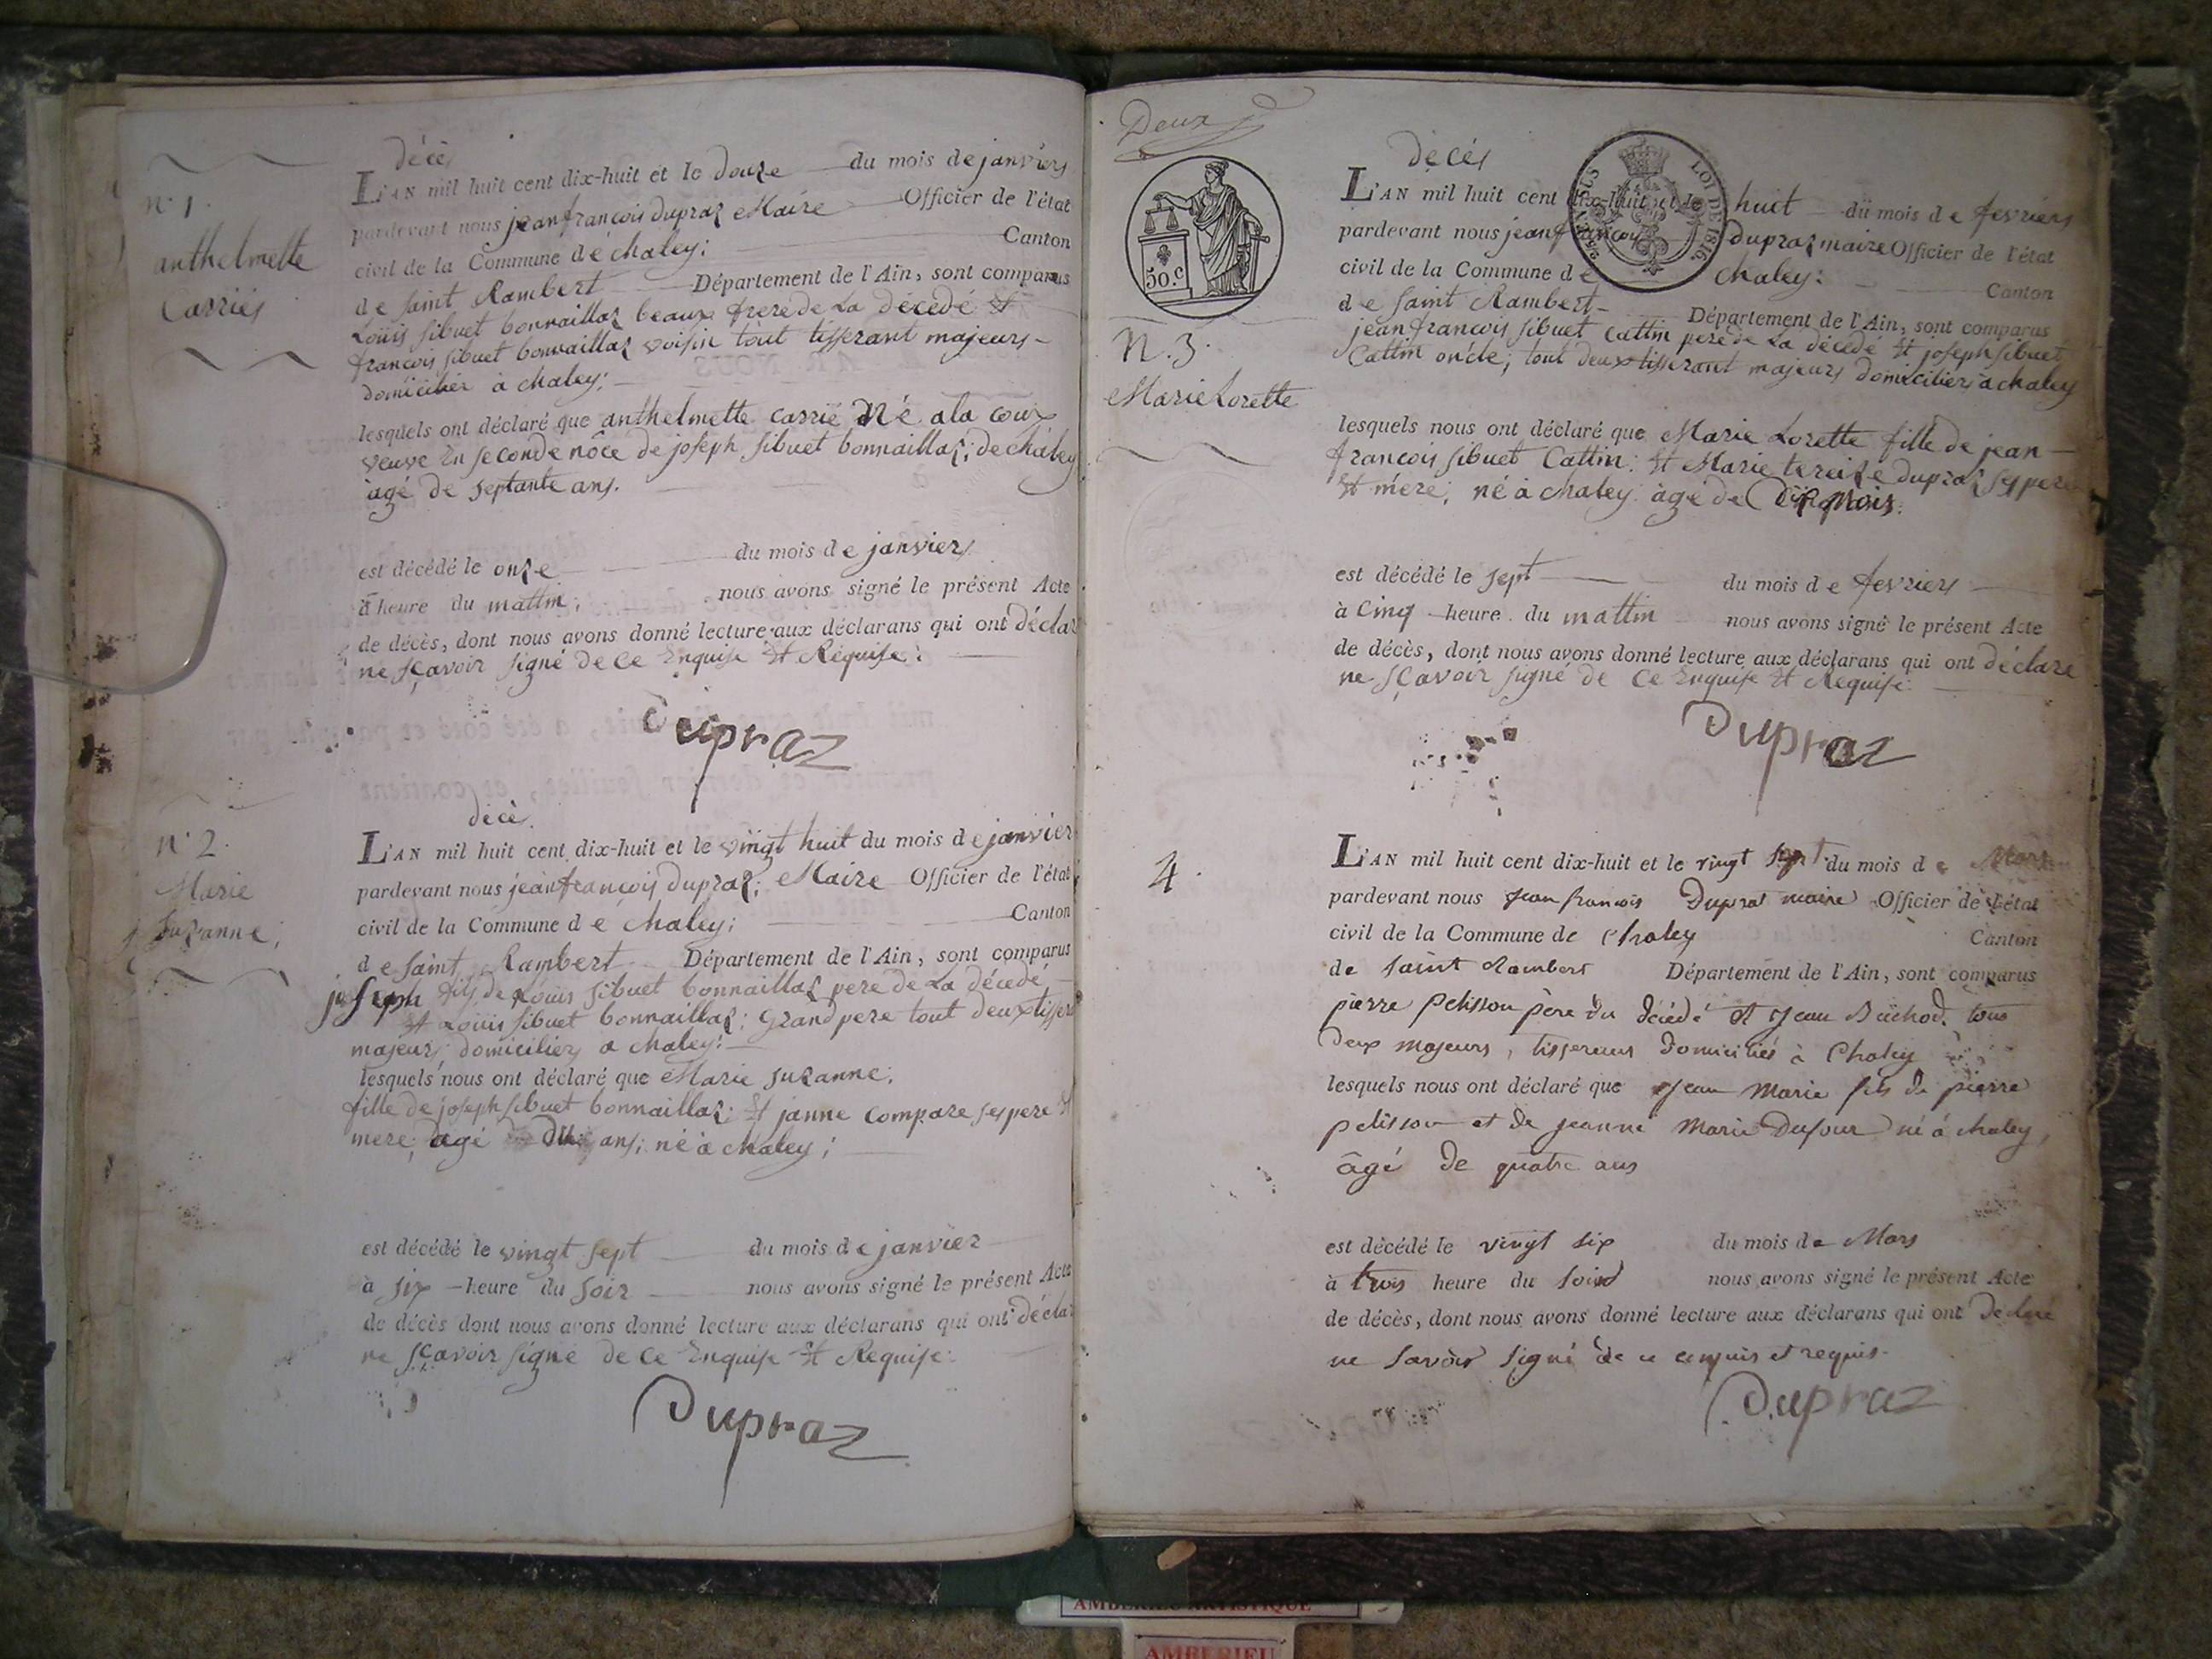 décès
n. 1.
anthelmette
Carriés
L'AN mil huit cent dix-huit et le douze du mois de janviers
pardevant nous jean francois dupraz Maire Officier de l'état
civil de la Commune de chaley; Canton
de saint Rambert Département de l'Ain, sont comparus
Loüis sibuet bonnaillaz beaux frere de La décedé Et
francois sibuet bonnaillaz voisin tout tisserant majeurs
domicilier à chaley;
lesquels ont déclaré que anthelmette carrié Né a la coux
veuve En seconde nôce de joseph sibuet bonnaillaz; de chaley
àgé de septante ans.
est décédé le onze du mois de janviers
à heure du mattin; nous avons signé le présent Acte
de décès, dont nous avons donné lecture aux déclarans qui ont déclar
ne sçavoir signé de ce Enquise Et Requise:
Dupraz
décè
n. 2.
Marie
Suzanne;
L'AN mil huit cent dix-huit et le vingt huit du mois de janvier
pardevant nous jean francois dupraz; Maire Officier de l'état
civil de la Commune de chaley; Canton
de saint Rambert Département de l'Ain, sont comparus
joseph fils de Loüis sibuet bonnaillaz pere de La décedé
Et Loüis sibuet bonnaillaz; Grand pere tout deux tisser
majeurs domiciliers a chaley:
lesquels nous ont déclaré que Marie suzanne;
fille de joseph sibuet bonnaillaz; Et janne compare ses pere Et
mere; àgé ans; né à chaley;
est décédé le vingt sept du mois de janvier
à six heure du soir nous avons signé le présent Acte
de décès dont nous avons donné lecture aux déclarans qui ont déclar
ne sçavoir signé de ce Enquise Et Requise:
Dupraz
Deux
50.c
LOI DE 1816
N. 3.
Marie Lorette
décés
L'AN mil huit cent dix-huit et le huit du mois de fevriers
pardevant nous jean francois dupraz maire Officier de l'état
civil de la Commune de chaley: Canton
de saint Rambert Département de l'Ain, sont comparus
jean francois sibuet Cattin pere de La décedé Et joseph sibuet
Cattin oncle; tout deux tisserant majeurs domiciliers à chaley
lesquels nous ont déclaré que Marie Lorette fille de jean
francois sibuet Cattin; Et Marie tereize dupraz ses pere
Et mere; né à chaley àgé de dix mois.
est décédé le sept du mois de fevriers
à cinq heure du mattin nous avons signé le présent Acte
de décès, dont nous avons donné lecture aux déclarans qui ont déclare
ne sçavoir signé de ce Enquise Et Requise
Dupraz
4.
L'AN mil huit cent dix-huit et le vingt sept du mois de Mars
pardevant nous jean francois Duprat maire Officier de l'état
civil de la Commune de Chaley Canton
de saint Rambert Département de l'Ain, sont comparus
pierre pelisson père du décédé et jean Bùchod. tous
deux majeurs, tisserans domiciliés à Chaley
lesquels nous ont déclaré que jean marie fils de pierre
pelisson et de jeanne marie Dufour né à chaley,
âgé de quatre ans
est décédé le vingt six du mois de Mars
à trois heure du soir nous avons signé le présent Acte
de décès, dont nous avons donné lecture aux déclarans qui ont déclaré
ne savoir signé de ce enquis et requis.
Dupraz
AMBERIEU ARTISTIQUE
AMBERIEU